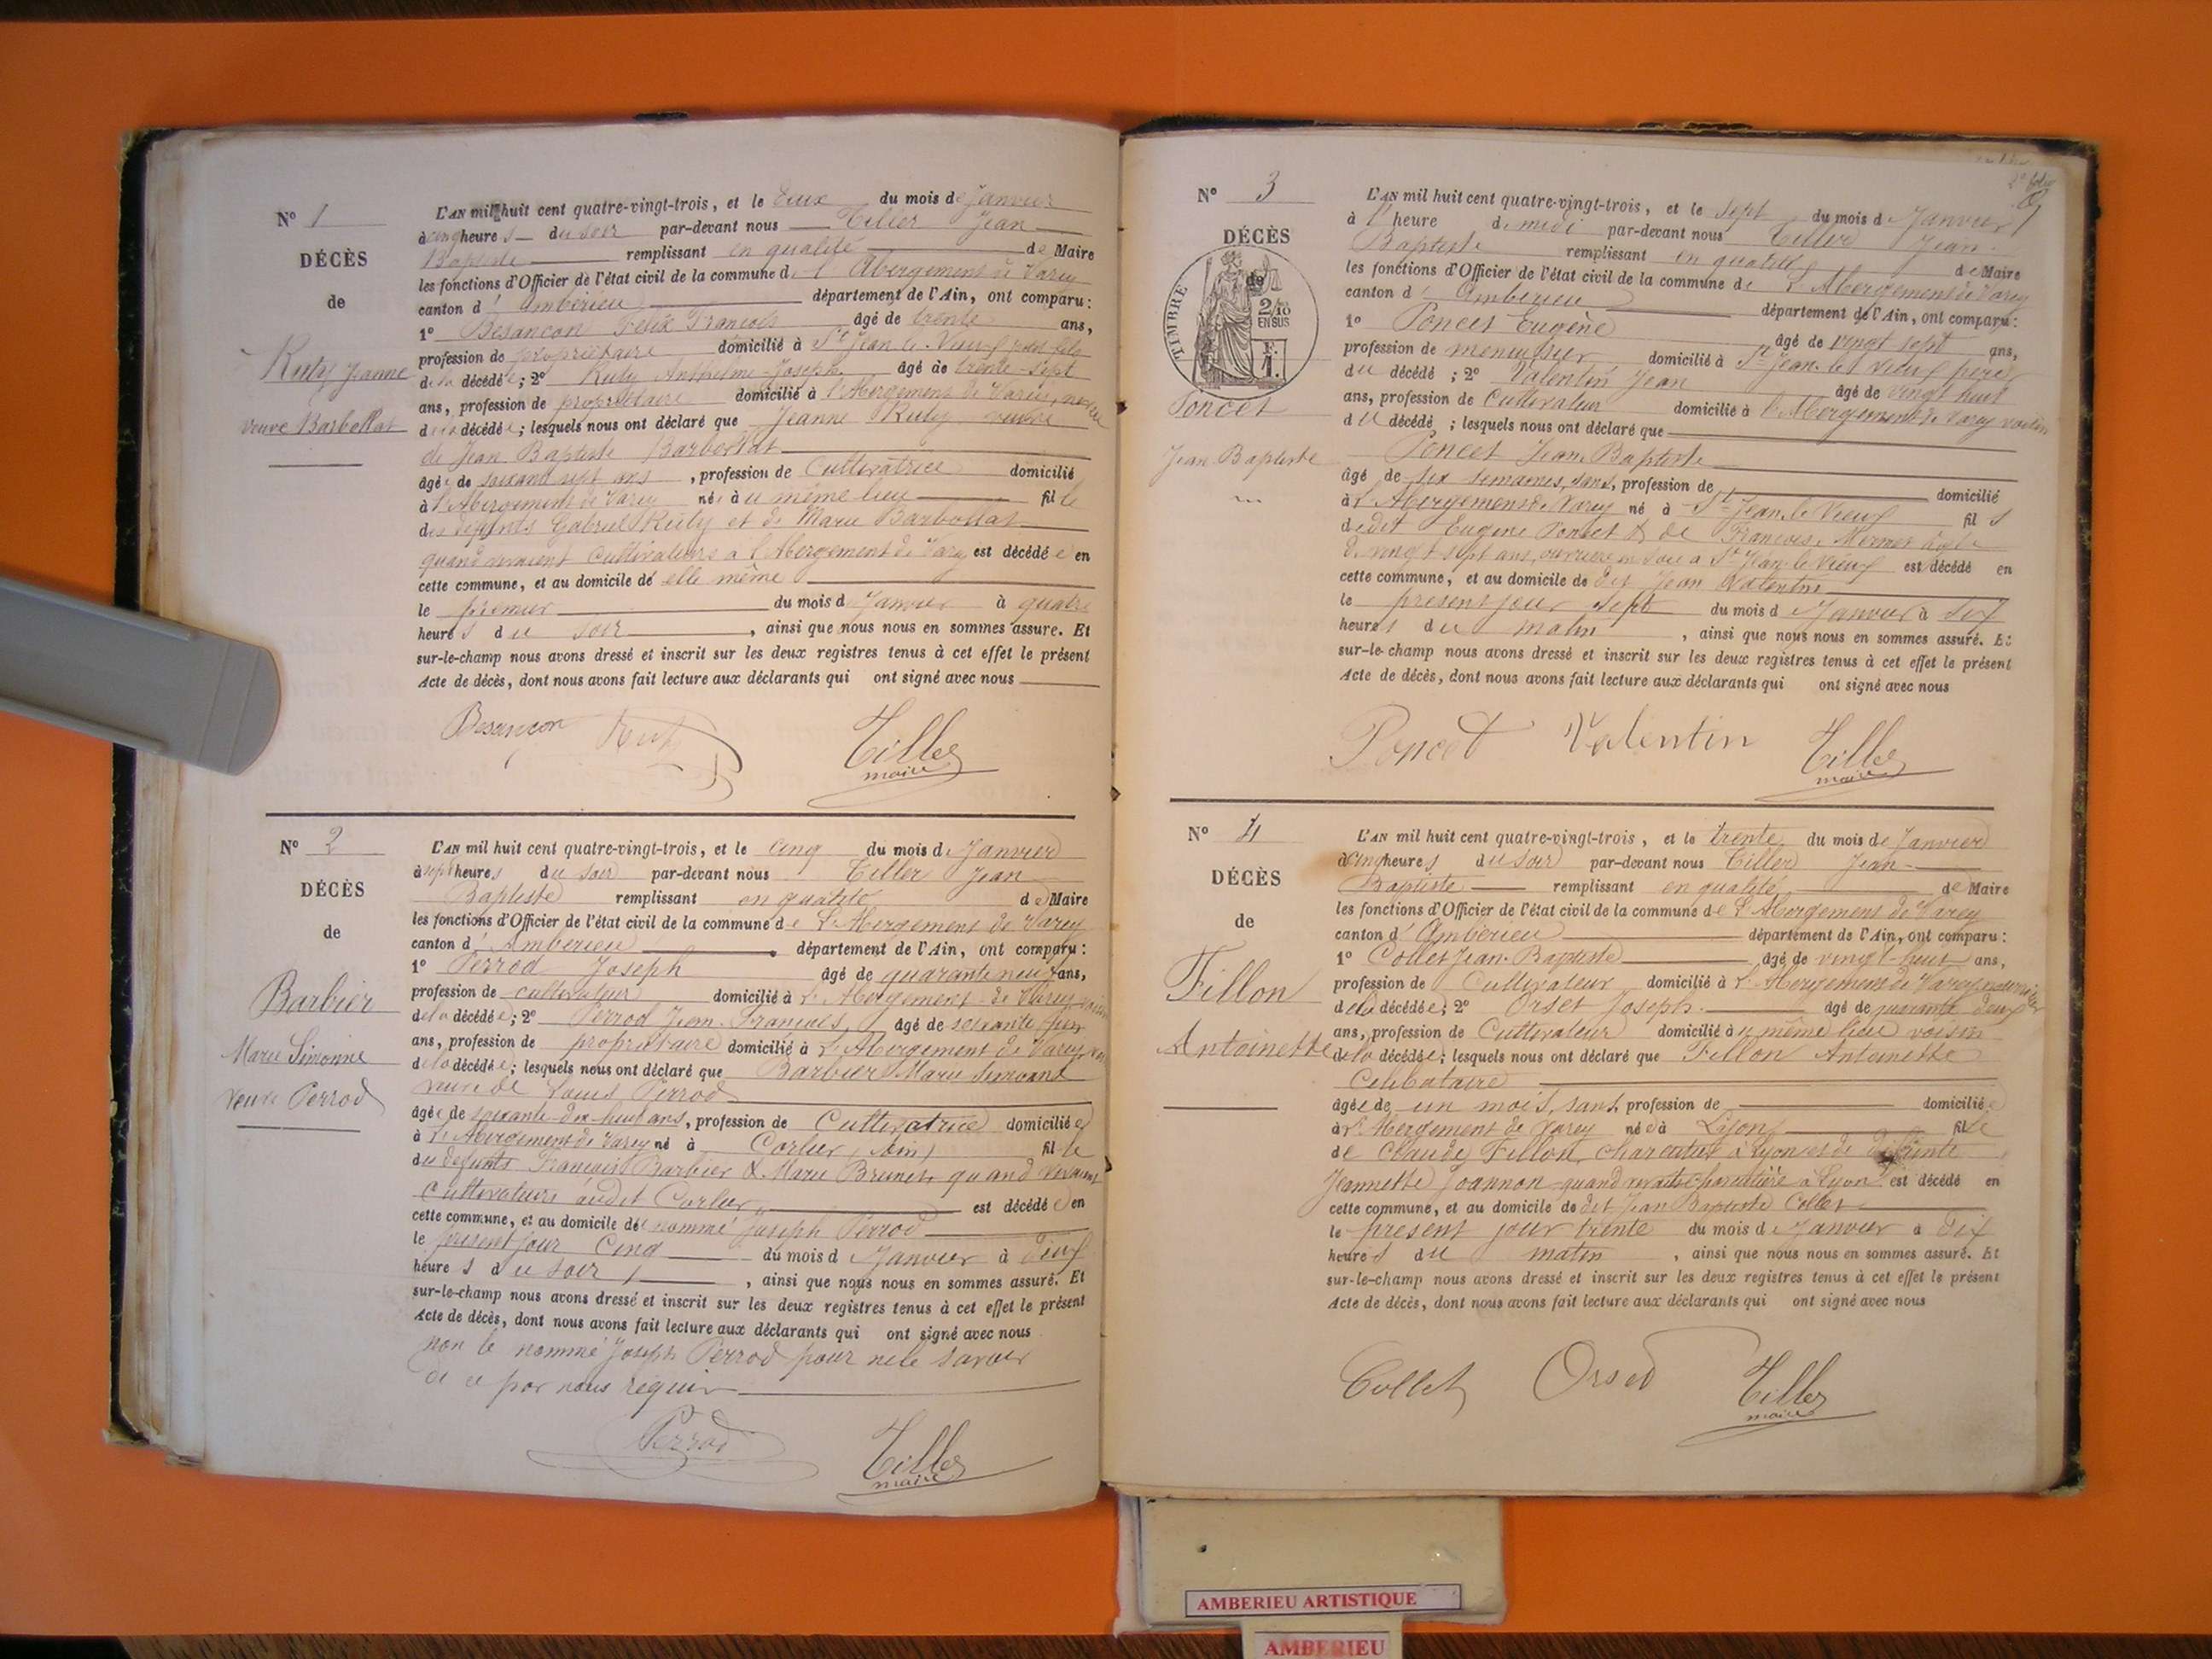 N° 1
DÉCÈS
de
Ruty Jeanne
veuve Barbollat
L'AN mil huit cent quatre-vingt-trois, et le deux du mois de Janvier
à cinq heures du soir par-devant nous Tiller Jean
Baptiste remplissant en qualité de Maire
les fonctions d'Officier de l'état civil de la commune de l'Abergement de Varey
canton d'Ambérieu département de l'Ain, ont comparu :
1° Besançon Félix François âgé de trente ans,
profession de propriétaire domicilié à St Jean le Vieux
de la décédée ; 2° Ruty Anthelme Joseph âgé de trente-sept
ans, profession de propriétaire domicilié à l'Abergement de Varey, neveu
de la décédée ; lesquels nous ont déclaré que Jeanne Ruty veuve
de Jean Baptiste Barbollat
âgée de soixante sept ans, profession de Cultivatrice domicilié
à l'Abergement de Varey née au même lieu fille
des défunts Gabriel Ruty et de Marie Barbollat
quand vivaient cultivateurs à l'Abergement de Varey est décédée en
cette commune, et au domicile de elle même
le premier du mois de Janvier à quatre
heures du soir, ainsi que nous nous en sommes assuré. Et
sur-le-champ nous avons dressé et inscrit sur les deux registres tenus à cet effet le présent
Acte de décès, dont nous avons fait lecture aux déclarants qui ont signé avec nous
Besançon Ruty Tiller
maire
N° 2
DÉCÈS
de
Barbier
Marie Simonne
veuve Perrod
L'AN mil huit cent quatre-vingt-trois, et le cinq du mois de Janvier
à sept heures du soir par-devant nous Tiller Jean
Baptiste remplissant en qualité de Maire
les fonctions d'Officier de l'état civil de la commune de L'Abergement de Varey
canton d'Ambérieu département de l'Ain, ont comparu :
1° Perrod Joseph âgé de quarante neuf ans,
profession de cultivateur domicilié à L'Abergement de Varey voisin
de la décédée ; 2° Perrod Jean François âgé de soixante
ans, profession de propriétaire domicilié à L'Abergement de Varey
de la décédée ; lesquels nous ont déclaré que Barbier Marie Simonne
veuve de Louis Perrod
âgée de soixante-dix-huit ans, profession de Cultivatrice domiciliée
à L'Abergement de Varey né à Corlier (Ain) fille
de défunts François Barbier & Marie Brunet quand vivaient
cultivateurs audit Corlier est décédée en
cette commune, et au domicile du nommé Joseph Perrod
le présent jour Cinq du mois de Janvier à deux
heures du soir, ainsi que nous nous en sommes assuré. Et
sur-le-champ nous avons dressé et inscrit sur les deux registres tenus à cet effet le présent
Acte de décès, dont nous avons fait lecture aux déclarants qui ont signé avec nous
non le nommé Joseph Perrod pour ne le savoir
de ce par nous requis
Perrod Tiller
maire
2e folio
N° 3
DÉCÈS
de
TIMBRE
2/10
EN SUS
Poncet
Jean Baptiste
L'AN mil huit cent quatre-vingt-trois, et le sept du mois de Janvier
à l'heure de midi par-devant nous Tiller Jean
Baptiste remplissant en qualité de Maire
les fonctions d'Officier de l'état civil de la commune de L'Abergement de Varey
canton d'Ambérieu département de l'Ain, ont comparu :
1° Poncet Eugène âgé de vingt sept ans,
profession de menuisier domicilié à St Jean le Vieux père
du décédé ; 2° Valentin Jean âgé de vingt huit
ans, profession de Cultivateur domicilié à l'Abergement de Varey voisin
du décédé ; lesquels nous ont déclaré que
Poncet Jean Baptiste
âgé de six semaines, sans, profession de domicilié
à L'Abergement de Varey né à St Jean le Vieux fils
dudit Eugène Poncet & de Françoise Mermet âgée
de vingt sept ans, ouvrière en soie à St Jean le Vieux est décédé en
cette commune, et au domicile de dit Jean Valentin
le présent jour sept du mois de Janvier à six
heures du matin, ainsi que nous nous en sommes assuré. Et
sur-le-champ nous avons dressé et inscrit sur les deux registres tenus à cet effet le présent
Acte de décès, dont nous avons fait lecture aux déclarants qui ont signé avec nous
Poncet Valentin Tiller
maire
N° 4
DÉCÈS
de
Fillon
Antoinette
L'AN mil huit cent quatre-vingt-trois, et le trente du mois de Janvier
à cinq heures du soir par-devant nous Tiller Jean
Baptiste remplissant en qualité de Maire
les fonctions d'Officier de l'état civil de la commune de L'Abergement de Varey
canton d'Ambérieu département de l'Ain, ont comparu :
1° Collet Jean-Baptiste âgé de vingt-huit ans,
profession de Cultivateur domicilié à L'Abergement de Varey nourricier
de la décédée ; 2° Orset Joseph âgé de quarante deux
ans, profession de Cultivateur domicilié au même lieu voisin
de la décédée ; lesquels nous ont déclaré que Fillon Antoinette
Célibataire
âgée de un mois, sans, profession de domiciliée
à L'Abergement de Varey née à Lyon fille
de Claude Fillon, charcutier à Lyon et de défunte
Jeannette Joannon quand vivait charcutière à Lyon est décédé en
cette commune, et au domicile de dit Jean Baptiste Collet
le présent jour trente du mois de Janvier à dix
heures du matin, ainsi que nous nous en sommes assuré. Et
sur-le-champ nous avons dressé et inscrit sur les deux registres tenus à cet effet le présent
Acte de décès, dont nous avons fait lecture aux déclarants qui ont signé avec nous
Collet Orset Tiller
maire
AMBERIEU ARTISTIQUE
AMBERIEU